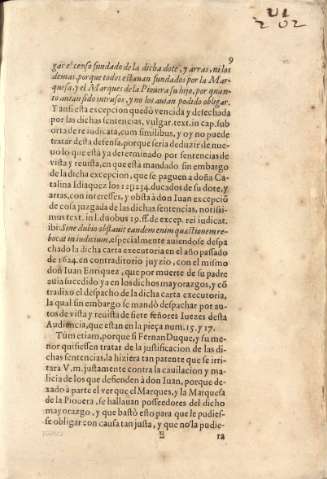 9
gar el censo fundado de la dicha dote, y arras, ni los
demas, porque todos estauan fundados por la Mar-
quesa, y el Marques de la Piouera su hijo, por quan-
to auian sido intrusos, y no los auian podido obligar.
Y ansi esta excepcion quedò vencida y desechada
por las dichas sentencias, vulgar. text. in cap. sub-
orta de re iudicata, cum similibus, y oy no puede
tratar desta defensa, porque seria deduzir de nue-
uo lo que està ya determinado por sentencias de
vista y reuista, en que esta mandado sin embargo
de la dicha excepcion, que se paguen a doña Ca-
talina Idiaquez los ducados de su dote, y
arras, con interesses, y obsta à don Iuan excepciõ
de cosa juzgada de las dichas sentencias, notissi-
mus text. in l. duobus 19. ff. de excep. rei iudicat.
ibi: Sine dubio obstauit eandem enim quæstionem re-
bocat in iudicium, especialmente auiendose despa
chado la dicha carta executoria en el año passado
de 1624. en contraditorio juyzio, con el mismo
don Iuan Enriquez, que por muerte de su padre
auia sucedido ya en los dichos mayorazgos, y cõ
tradixo el despacho de la dicha carta executoria,
la qual sin embargo se mandò despachar por au-
tos de vista y reuista de siete señores Iuezes desta
Audiencia, que estan en la pieça num. 15. y 17.
Tum etiam, porque si Fernan Duque, y su me-
nor quisiessen tratar de la justificacion de las di-
chas sentencias, la hiziera tan patente que se irri-
tara V. m. justamente contra la cauilacion y ma-
licia de los que defienden à don Iuan, porque de-
xado à parte el ver que el Marques, y la Marquesa
de la Piouera, se hallauan posseedores del dicho
mayorazgo, y que bastò esto para que le pudies-
se obligar con causa tan justa, y que no la pudie-
E
ra